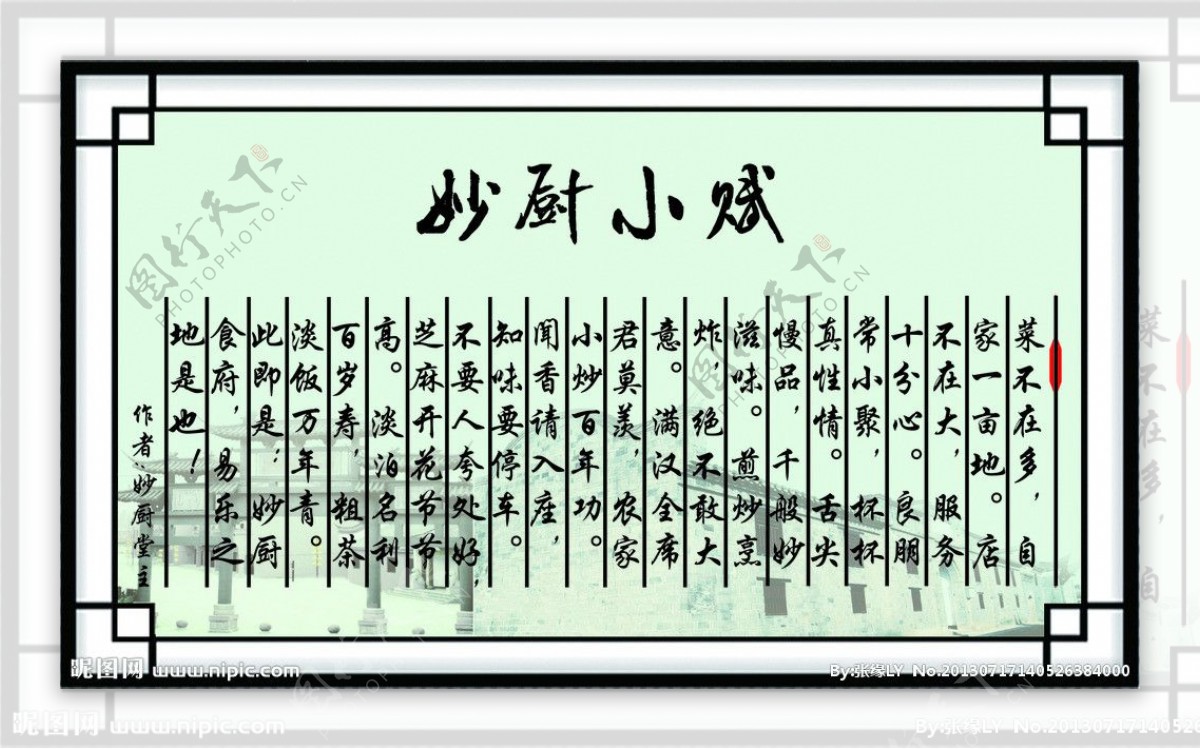 妙厨小赋
菜不在多，自
家一亩地。店
不在大，服务
十分心。良朋
常小聚，杯杯
真性情。舌尖
慢品，千般妙
滋味。煎炒烹
炸，绝不敢大
意。满汉全席
君莫羡，农家
小炒百年功。
闻香请入座，
知味要停车。
不要人夸处好，
芝麻开花节节
高。淡泊名利
百岁寿，粗茶
淡饭万年青。
此即是：妙厨
食府，易乐之
地是也！
作者：妙厨堂主
图行天下
PHOTOPHOTO.CN
图行天下
PHOTOPHOTO.CN
菜不在多，自
昵图网 www.nipic.com
By:张缘LY No.20130717140526384000
昵图网 www.nipic.com
By:张缘LY No.201307171405263